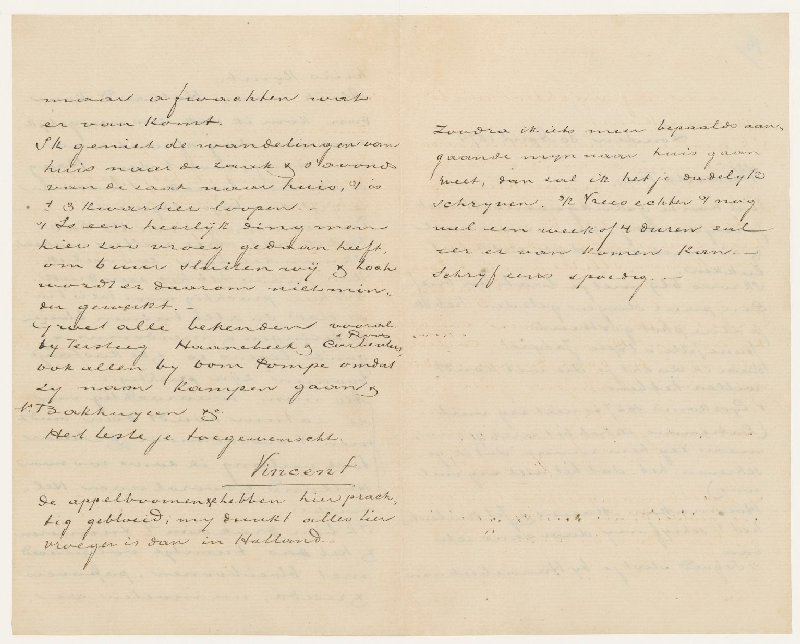 maar afwachten wat
er van komt.
Ik geniet de wandelingen van
huis naar de zaak & 's avonds
van de zaak naar huis, 't is
± 3 kwartier loopen.
't Is een heerlijk ding men
hier zoo vroeg gedaan heeft,
om 6 uur sluiten wij & toch
wordt er daarom niet min,
der gewerkt. –
Groet alle bekenden vooral
by Tersteeg Haanebeek & Carbentus
& Roos
ook allen by Oom Pompe omdat
zy naar Kampen gaan &
Mr Bakhuyzen &c
Het beste je toegewenscht.
Vincent
de appelboomen &c hebben hier prach,
tig gebloeid; my dunkt alles hier
vroeger is dan in Holland.
Zoodra ik iets meer bepaalds aan,
gaande myn naar huis gaan
weet, dan zal ik het je dadelyk
schryven. Ik Vrees echter 't nog
wel een week of 4 duren zal
eer er van komen kan. –
Schryf eens spoedig. –